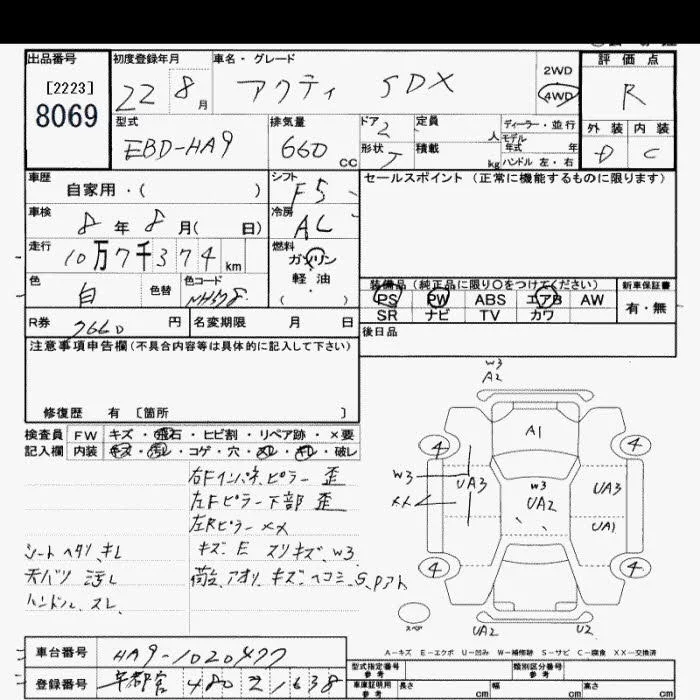 出品番号 初度登録年月 車名・グレード 評価点
[2223]
8069
22 8月 アクティ SDX 2WD 4WD R
型式 排気量 ドア 2 定員 人 ディーラー・並行 外装 内装
EBD-HA9 660 CC 形状 T 積載 kg モデル年式 年 ハンドル 左・右 D C
車歴 自家用・( ) シフト F5 セールスポイント (正常に機能するものに限ります)
車検 8年 8月( 日) 冷房 AC
走行 10万7千374 km 燃料 ガソリン
軽油
( ・ )
色 白 色替 色コード NH578
装備品(純正品に限り〇をつけてください) 新車保証書
PS PW ABS エアB AW 有・無
SR ナビ TV カワ
R券 7660 円 名変期限 月 日 後日品
注意事項申告欄(不具合内容等は具体的に記入して下さい)
修復歴 有 〔箇所 〕
検査員 FW キズ・飛石・ヒビ割・リペア跡・×要
記入欄 内装 キズ・汚レ・コゲ・穴・スレ・キレ・破レ
右Fインパネ、ピラー 歪
左Fピラー下部 歪
左Rピラー ××
シート ヘタリ、キレ キズ・E スリキズ、W3
天バリ 汚レ 荷台、アオリ、キズ、ヘコミ、S、Pアト
ハンドル、スレ、
W3
A2
A1
4 4
W3 UA3 W3 UA2 UA3
××
UA1
4 4
スペア
UA2 U2
A−キズ E−エクボ U−凹み W−補修跡 S−サビ C−腐食 XX−交換済
車台番号 HA9-1020477
登録番号 480 1638
型式指定番号 参考 類別区分番号 参考
車庫証明用 参考 長さ cm 幅 cm 高さ cm